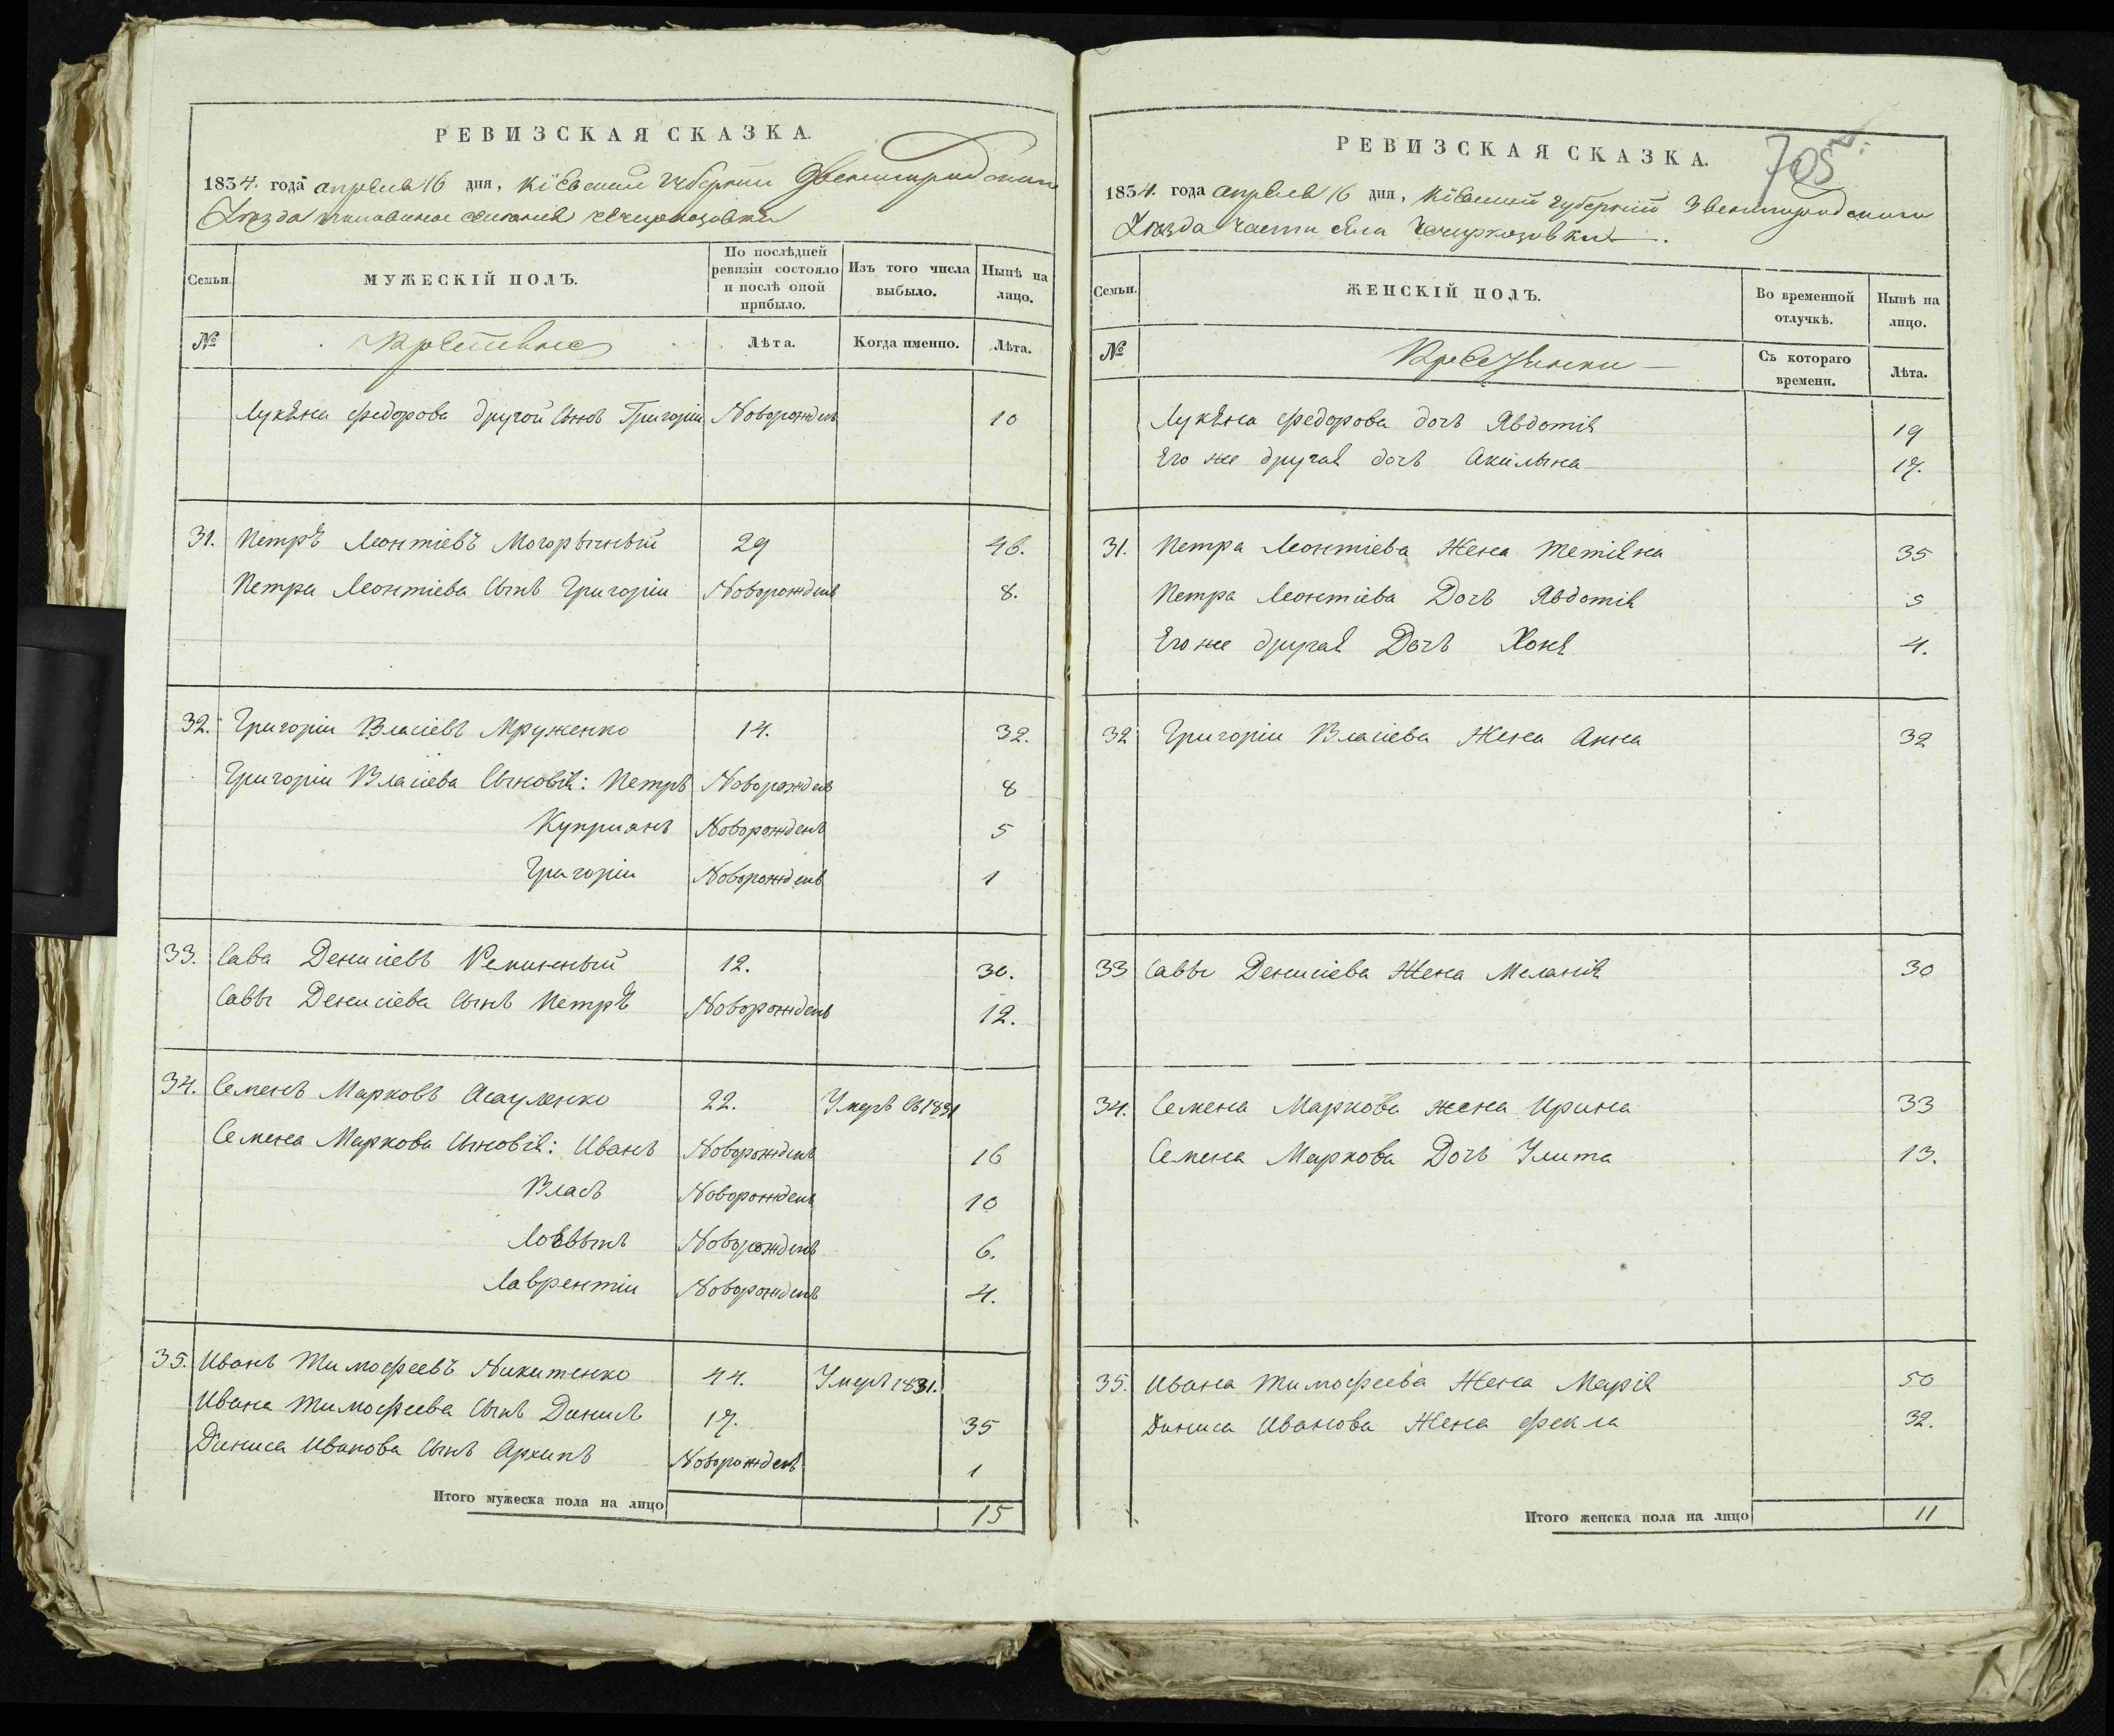 РЕВИЗСКАЯ СКАЗКА.
1834. года апреля 16 дня, Кіевской Губерніи Звенигородскаго
Уезда половиное имения Чечиркозовки
Семьи. МУЖЕСКІЙ ПОЛЪ. По послѣдней ревизіи состояло и послѣ оной прибыло. Изъ того числа выбыло. Нынѣ на лицо.
№ Лѣта. Когда именно. Лѣта.
Лукяна Федорова другой сынъ Григорій Новорожденъ 10
31. Петръ Леонтіевъ Могорычный 29 46.
Петра Леонтіева Сынъ Григоріи Новорожденъ 8.
32. Григоріи Власіевъ Мруженко 14. 32.
Григоріи Власіева Сыновія: Петръ Новорожденъ 8
Куприянъ Новорожденъ 5
Григоріи Новорожденъ 1
33. Сава Денисіевъ Репинный 12. 30.
Саввы Денисіева Сынъ Петръ Новорожденъ 12.
34. Семенъ Марковъ Асауленко 22. Умеръ въ 1831
Семена Маркова Сыновія: Иванъ Новорожденъ 16
Власъ Новорожденъ 10
Логвынъ Новорожденъ 6.
Лаврентіи Новорожденъ 4.
35. Иванъ Тимофеевъ Никитенко 44. Умеръ 1831.
Ивана Тимофеева Сынъ Динисъ 17. 35
Диниса Иванова Сынъ Архипъ Новорожденъ 1
Итого мужеска пола на лицо 15
705
РЕВИЗСКАЯ СКАЗКА.
1834. года апреля 16 дня, Кіевской Губерніи Звенигородскаго
Уезда части села Чечиркозовки.
Семьи. ЖЕНСКІЙ ПОЛЪ. Во временной отлучкѣ. Нынѣ на лицо.
№ Съ котораго времени. Лѣта.
Лукяна Федорова дочъ Явдотія 19
Его же другая дочъ Акилына 17.
31. Петра Леонтіева Жена Тетіяна 35
Петра Леонтіева Дочъ Явдотія 5
Его же другая Дочъ Хоня 4.
32 Григоріи Власіева Жена Анна 32
33 Саввы Денисіева Жена Меланія 30
34. Семена Маркова жена Ирина 33
Семена Маркова Дочъ Улита 13.
35. Ивана Тимофеева Жена Марія 50
Диниса Иванова Жена Фекла 32.
Итого женска пола на лицо 11